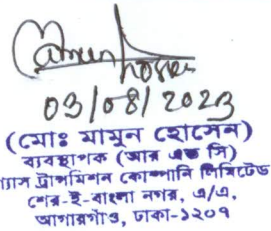 Mamun Hossen
03/08/2023
(মোঃ মামুন হোসেন)
ব্যবস্থাপক (আর এন্ড সি)
গ্যাস ট্রান্সমিশন কোম্পানি লিমিটেড
শের-ই-বাংলা নগর, এ/এ,
আগারগাঁও, ঢাকা-১২০৭